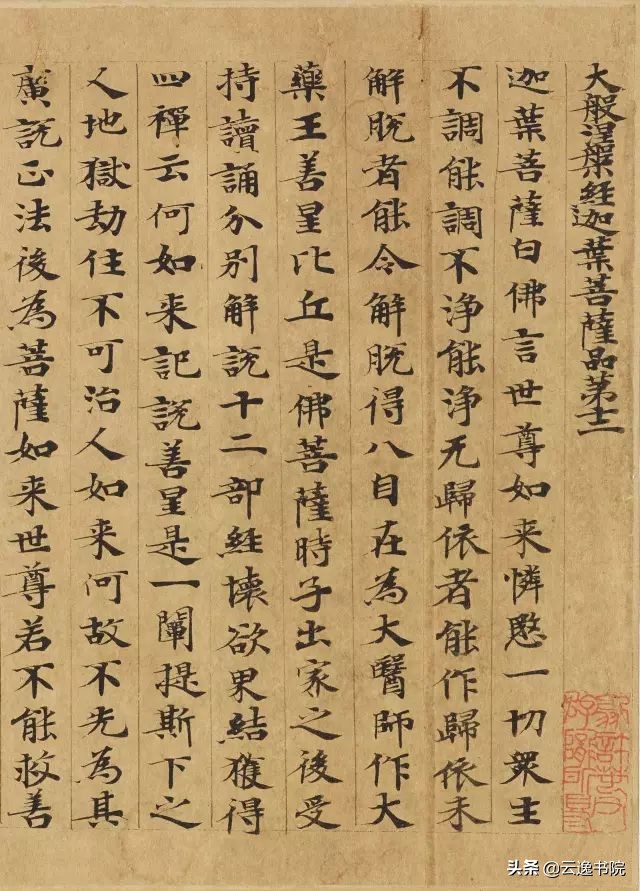 大般涅槃經迦葉菩薩品第十二
迦葉菩薩白佛言世尊如来憐愍一切衆生
不調能調不淨能淨无歸依者能作歸依未
解脫者能令解脫得八自在為大醫師作大
藥王善星比丘是佛菩薩時子出家之後受
持讀誦分別解說十二部經壞欲界結獲得
四禪云何如来記說善星是一闡提斯下之
人地獄劫住不可治人如来何故不先為其
廣說正法後為菩薩如来世尊若不能救善
头条 @云逸书院